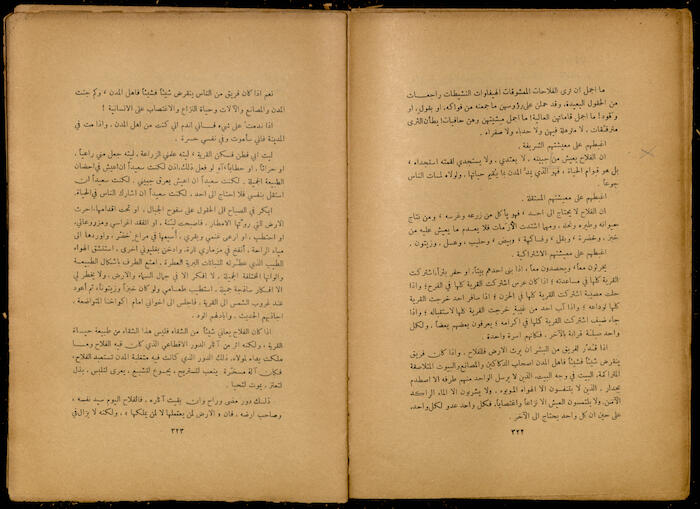 ما اجمل ان ترى الفلاحات الممشوقات الهيفاوات النشيطات راجعات
من الحقول البعيدة، وقد حملن على رؤوسهن ما جمعنه من فواكه، او بقول، او
وقود! ما اجمل قاماتهن العالية! ما اجمل مشيتهن وهن حافيات! يطأن الثرى
مترفقات، لا مترهلة فيهن ولا حدباء ولا صفراء.
اغبطهم على معيشتهم الشريفة.
ان الفلاح يعيش من جبينه، لا يعتدي، ولا يستجدي لقمته استجداء،
بل هو قوام الحياة، فهو الذي يمد المدن بما يقيم حياتها، ولولاه لمات الناس
جوعاً.
اغبطهم على معيشتهم المستقلة.
ان الفلاح لا يحتاج الى احد، فهو يأكل من زرعه وغرسه، ومن نتاج
حيوانه وطيره ونحله، ومهما اشتدت الأزمات فلا يعدم ما يعيش عليه من
خبز، وخضرة، وبقل، وفاكهة، وبيض، وحليب، وعسل، وزيتون.
اغبطهم على معيشتهم الاشتراكية.
يحرثون معاً، ويحصدون معاً، اذا بنى احدهم بيتاً، او حفر بئراً، اشتركت
القرية كلها في مساعدته؛ اذا كان عرس اشتركت القرية كلها في الفرح؛ واذا
حلت مصيبة اشتركت القرية كلها في الحزن؛ اذا سافر احد خرجت القرية
كلها لوداعه؛ واذا آب احد من غيبة خرجت القرية كلها لاستقباله؛ واذا
جاء ضيف اشتركت القرية كلها في اكرامه؛ يعرفون بعضهم بعضاً، ولكل
واحد صلة قرابة بالآخر، فكأنهم اسرة واحدة.
اذا قدر لفريق من البشر ان يرث الارض فللفلاح، واذا كان فريق
ينقرض شيئاً فشيئاً فاهل المدن اصحاب الدكاكين والمصانع والبيوت المتلاصقة
المتراكمة، البيت في وجه البيت، الذين لا يرسل الواحد منهم طرفه الا اصطدم
بجدار، الذين لا يتنفسون الا الهواء الموبوء، ولا يشربون الا الماء الراكد
الآسن، ولا يلتمسون العيش الا نزاعاً واغتصاباً، فكل واحد عدو لكل واحد،
على حين ان كل واحد يحتاج الى الآخر.
٣٢٢
نعم اذا كان فريق من الناس ينقرض شيئاً فشيئاً فاهل المدن، وكم جنت
المدن والمصانع والآلات وحياة النزاع والاغتصاب على الانسانية!
اذا ندمت على شيء فاني اندم اني كنت من اهل المدن، واذا مت في
المدينة فاني سأموت وفي نفسي حسرة.
ليت ابي فطن فسكن القرية، ليته علمني الزراعة، ليته جعل مني راعياً،
او حراثاً، او حطاباً، آه لو فعل ذلك، اذن لكنت سعيداً ان اعيش في احضان
الطبيعة الجميلة. لكنت سعيداً ان اعيش بعرق جبيني. لكنت سعيداً ان
استقل بنفسي فلا احتاج الى احد. لكنت سعيداً ان اشارك الناس في الحياة.
ابكر في الصباح الى الحقول على سفوح الجبال، او تحت اقدامها، احرث
الارض التي روتها الامطار، فاصبحت لينة، او اتفقد اغراسي ومزروعاتي،
او احتطب، او ارعى غنمي وبقري، أسيمها في مراع خضر، واوردها الى
مياه الراحة، أنفخ في مزماري تارة، وادخن بغليوني اخرى، استنشق الهواء
الطيب الذي عطرته النباتات البرية العطرة، امتع الطرف باشكال الطبيعة
والوانها المختلفة الجميلة، لا افكر الا في جمال السماء والارض، ولا يخطر لي
الا افكار ساذجة جميلة، استطيب طعامي ولو كان خبزاً وزيتوناً، ثم أعود
عند غروب الشمس الى القرية، فاجلس الى اخواني امام اكواخنا المتواضعة،
اجاذبهم الحديث، وابادلهم الود.
اذا كان الفلاح يعاني شيئاً من الشقاء فليس هذا الشقاء من طبيعة حياة
القرية، ولكنه اثر من آثار الدور الاقطاعي الذي كان فيه الفلاح وما
ملكت يداه لمولاه، ذلك الدور الذي كانت فيه متغلبة المدن تستعبد الفلاح،
فكأن آلة مسخرة، يتعب لتستريح، يجوع لتشبع، يعرى لتلبس، يذل
لتعتز، يموت لتحيا.
ذلك دور مضى وراح وان بقيت آثاره، فالفلاح اليوم سيد نفسه،
وصاحب ارضه، فان «الارض لمن يعتملها لا لمن يملكها»، ولكنه لا يزال في
٣٢٣